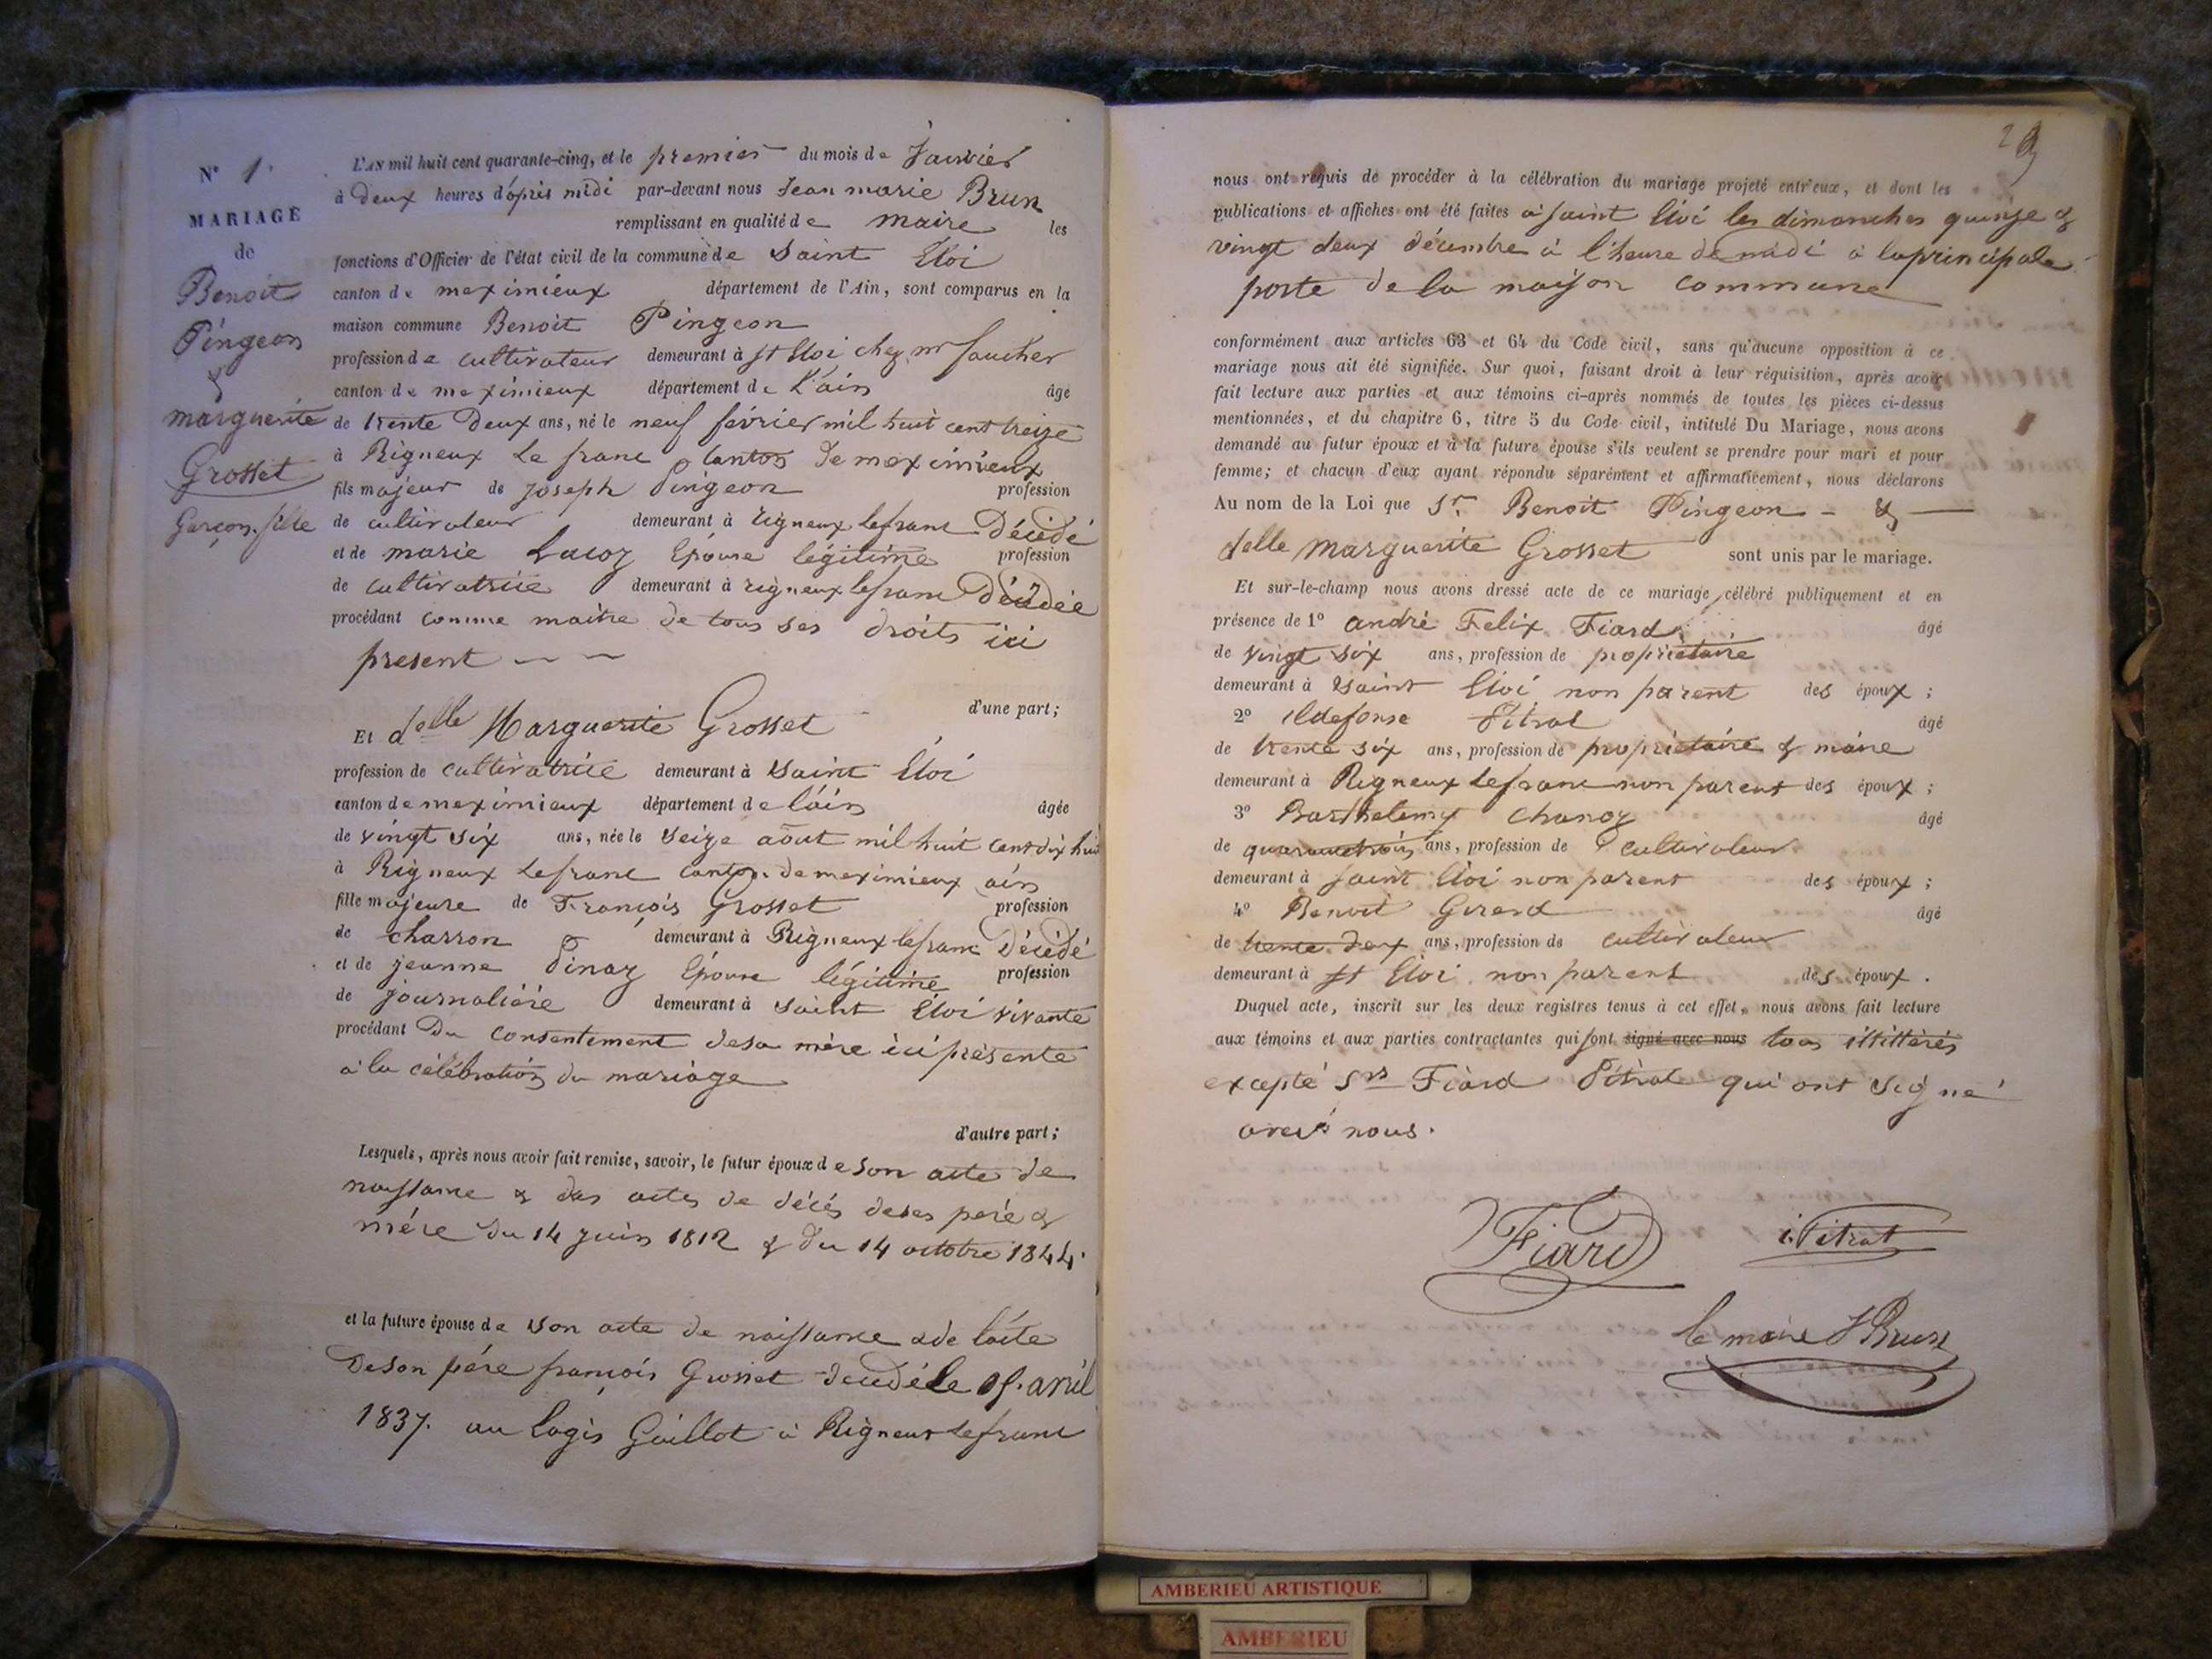 N° 1.
MARIAGE
de
Benoit
Pingeon
&
marguerite
Grosset
Garçon, fille
L'AN mil huit cent quarante-cinq, et le premier du mois de Janvier
à deux heures d'après midi par-devant nous Jean marie Brun
remplissant en qualité de maire les
fonctions d'Officier de l'état civil de la commune de Saint Eloi
canton de meximieux département de l'Ain, sont comparus en la
maison commune Benoit Pingeon
profession de cultivateur demeurant à St Eloi chez mr faucher
canton de meximieux département de L'ain âgé
de trente deux ans, né le neuf février mil huit cent treize
à Rigneux le franc Canton de meximieux
fils majeur de Joseph Pingeon profession
de cultivateur demeurant à rigneux lefranc Décédé
et de marie Lacoz Epouse légitime profession
de cultivatrice demeurant à rigneux lefranc Décédée
procédant comme maitre de tous ses droits ici
present
d'une part;
Et delle Marguerite Grosset
profession de cultivatrice demeurant à Saint Eloi
canton de meximieux département de l'ain âgée
de vingt six ans, née le seize aôut mil huit cent dix huit
à Rigneux lefranc canton de meximieux ain
fille majeure de François Grosset profession
de charron demeurant à Rigneux lefranc Décédé
et de jeanne Pinaz Epouse légitime profession
de journalière demeurant à Saint Eloi vivante
procédant Du consentement desa mère ici présente
à la célébration du mariage
d'autre part;
Lesquels, après nous avoir fait remise, savoir, le futur époux de son acte de
naissance & des actes de décés deses peré &
mère du 14 juin 1812 & du 14 octobre 1844.
et la future épouse de son acte de naissance & de l'acte
Deson pére françois Grosset decedé le 05. avril
1837. au Logis Guillot à Rigneux lefranc
29
nous ont requis de procéder à la célébration du mariage projeté entr'eux, et dont les
publications et affiches ont été faites à saint Eloi les dimanches quinze &
vingt deux décembre à l'heure de midi à laprincipale
porte de la maison commune
conformément aux articles 63 et 64 du Code civil, sans qu'aucune opposition à ce
mariage nous ait été signifiée. Sur quoi, faisant droit à leur réquisition, après avoir
fait lecture aux parties et aux témoins ci-après nommés de toutes les pièces ci-dessus
mentionnées, et du chapitre 6, titre 5 du Code civil, intitulé Du Mariage, nous avons
demandé au futur époux et à la future épouse s'ils veulent se prendre pour mari et pour
femme; et chacun d'eux ayant répondu séparément et affirmativement, nous déclarons
Au nom de la Loi que Sr. Benoit Pingeon - &
delle Marguerite Grosset sont unis par le mariage.
Et sur-le-champ nous avons dressé acte de ce mariage, célébré publiquement et en
présence de 1° andré Felix Fiard âgé
de vingt six ans, profession de propriétaire
demeurant à Saint Eloi non parent des époux;
2° ildefonse Pitrat âgé
de trente six ans, profession de propriétaire & maire
demeurant à Rigneux Lefranc non parent des époux;
3° Barthelemy Chanoz âgé
de quarantetrois ans, profession de cultivateur
demeurant à Saint Eloi non parent des époux;
4° Benoit Girard âgé
de trente deux ans, profession de cultivateur
demeurant à St Eloi non parent des époux.
Duquel acte, inscrit sur les deux registres tenus à cet effet, nous avons fait lecture
aux témoins et aux parties contractantes qui sont signé avec nous tous illittérés
excepté Srs Fiard Pitrat qui ont signé
avec nous.
Fiard
i. Pitrat
le maire J Brun
AMBERIEU ARTISTIQUE
AMBERIEU